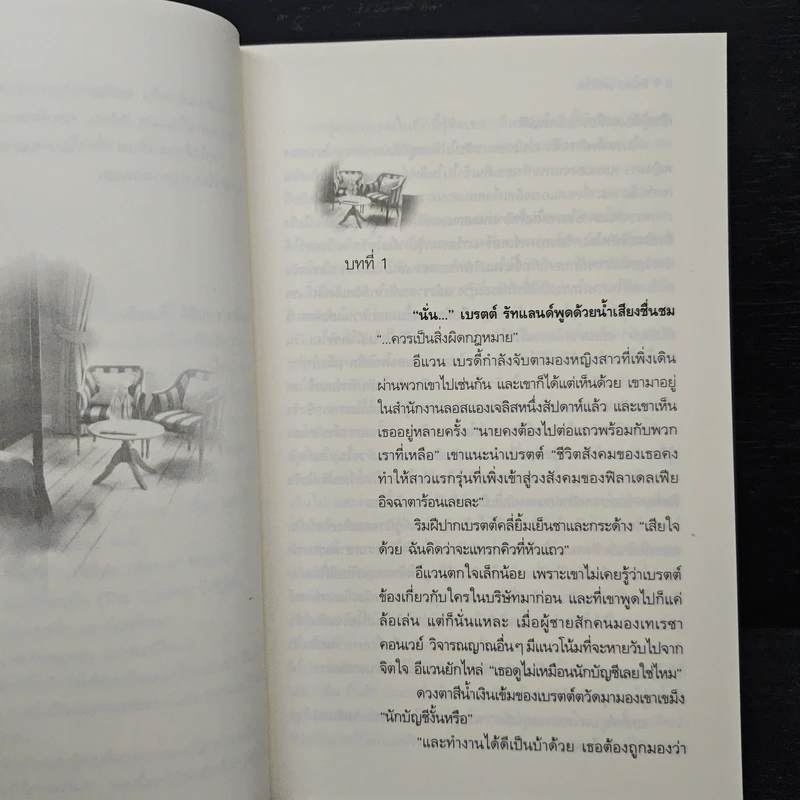 บทที่ 1
“นั่น...” เบรตต์ รัทแลนด์พูดด้วยน้ำเสียงชื่นชม
“...ควรเป็นสิ่งผิดกฎหมาย”
อีแวน เบรดี้กำลังจับตามองหญิงสาวที่เพิ่งเดิน
ผ่านพวกเขาไปเช่นกัน และเขาก็ได้แต่เห็นด้วย เขามาอยู่
ในสำนักงานลอสแองเจลิสหนึ่งสัปดาห์แล้ว และเขาเห็น
เธออยู่หลายครั้ง “นายคงต้องไปต่อแถวพร้อมกับพวก
เราที่เหลือ” เขาแนะนำเบรตต์ “ชีวิตสังคมของเธอคง
ทำให้สาวแรกรุ่นที่เพิ่งเข้าสู่วงสังคมของฟิลาเดลเฟีย
อิจฉาตาร้อนเลยละ”
ริมฝีปากเบรตต์คลี่ยิ้มเย็นชาและกระด้าง “เสียใจ
ด้วย ฉันคิดว่าจะแทรกคิวที่หัวแถว”
อีแวนตกใจเล็กน้อย เพราะเขาไม่เคยรู้ว่าเบรตต์
ข้องเกี่ยวกับใครในบริษัทมาก่อน และที่เขาพูดไปก็แค่
ล้อเล่น แต่ก็นั่นแหละ เมื่อผู้ชายสักคนมองเทเรซา
คอนเวย์ วิจารณญาณอื่นๆ มีแนวโน้มที่จะหายวับไปจาก
จิตใจ อีแวนยักไหล่ “เธอดูไม่เหมือนนักบัญชีเลยใช่ไหม”
ดวงตาสีน้ำเงินเข้มของเบรตต์ตวัดมามองเขาเขม็ง
“นักบัญชีงั้นหรือ”
“และทำงานได้ดีเป็นบ้าด้วย เธอต้องถูกมองว่า